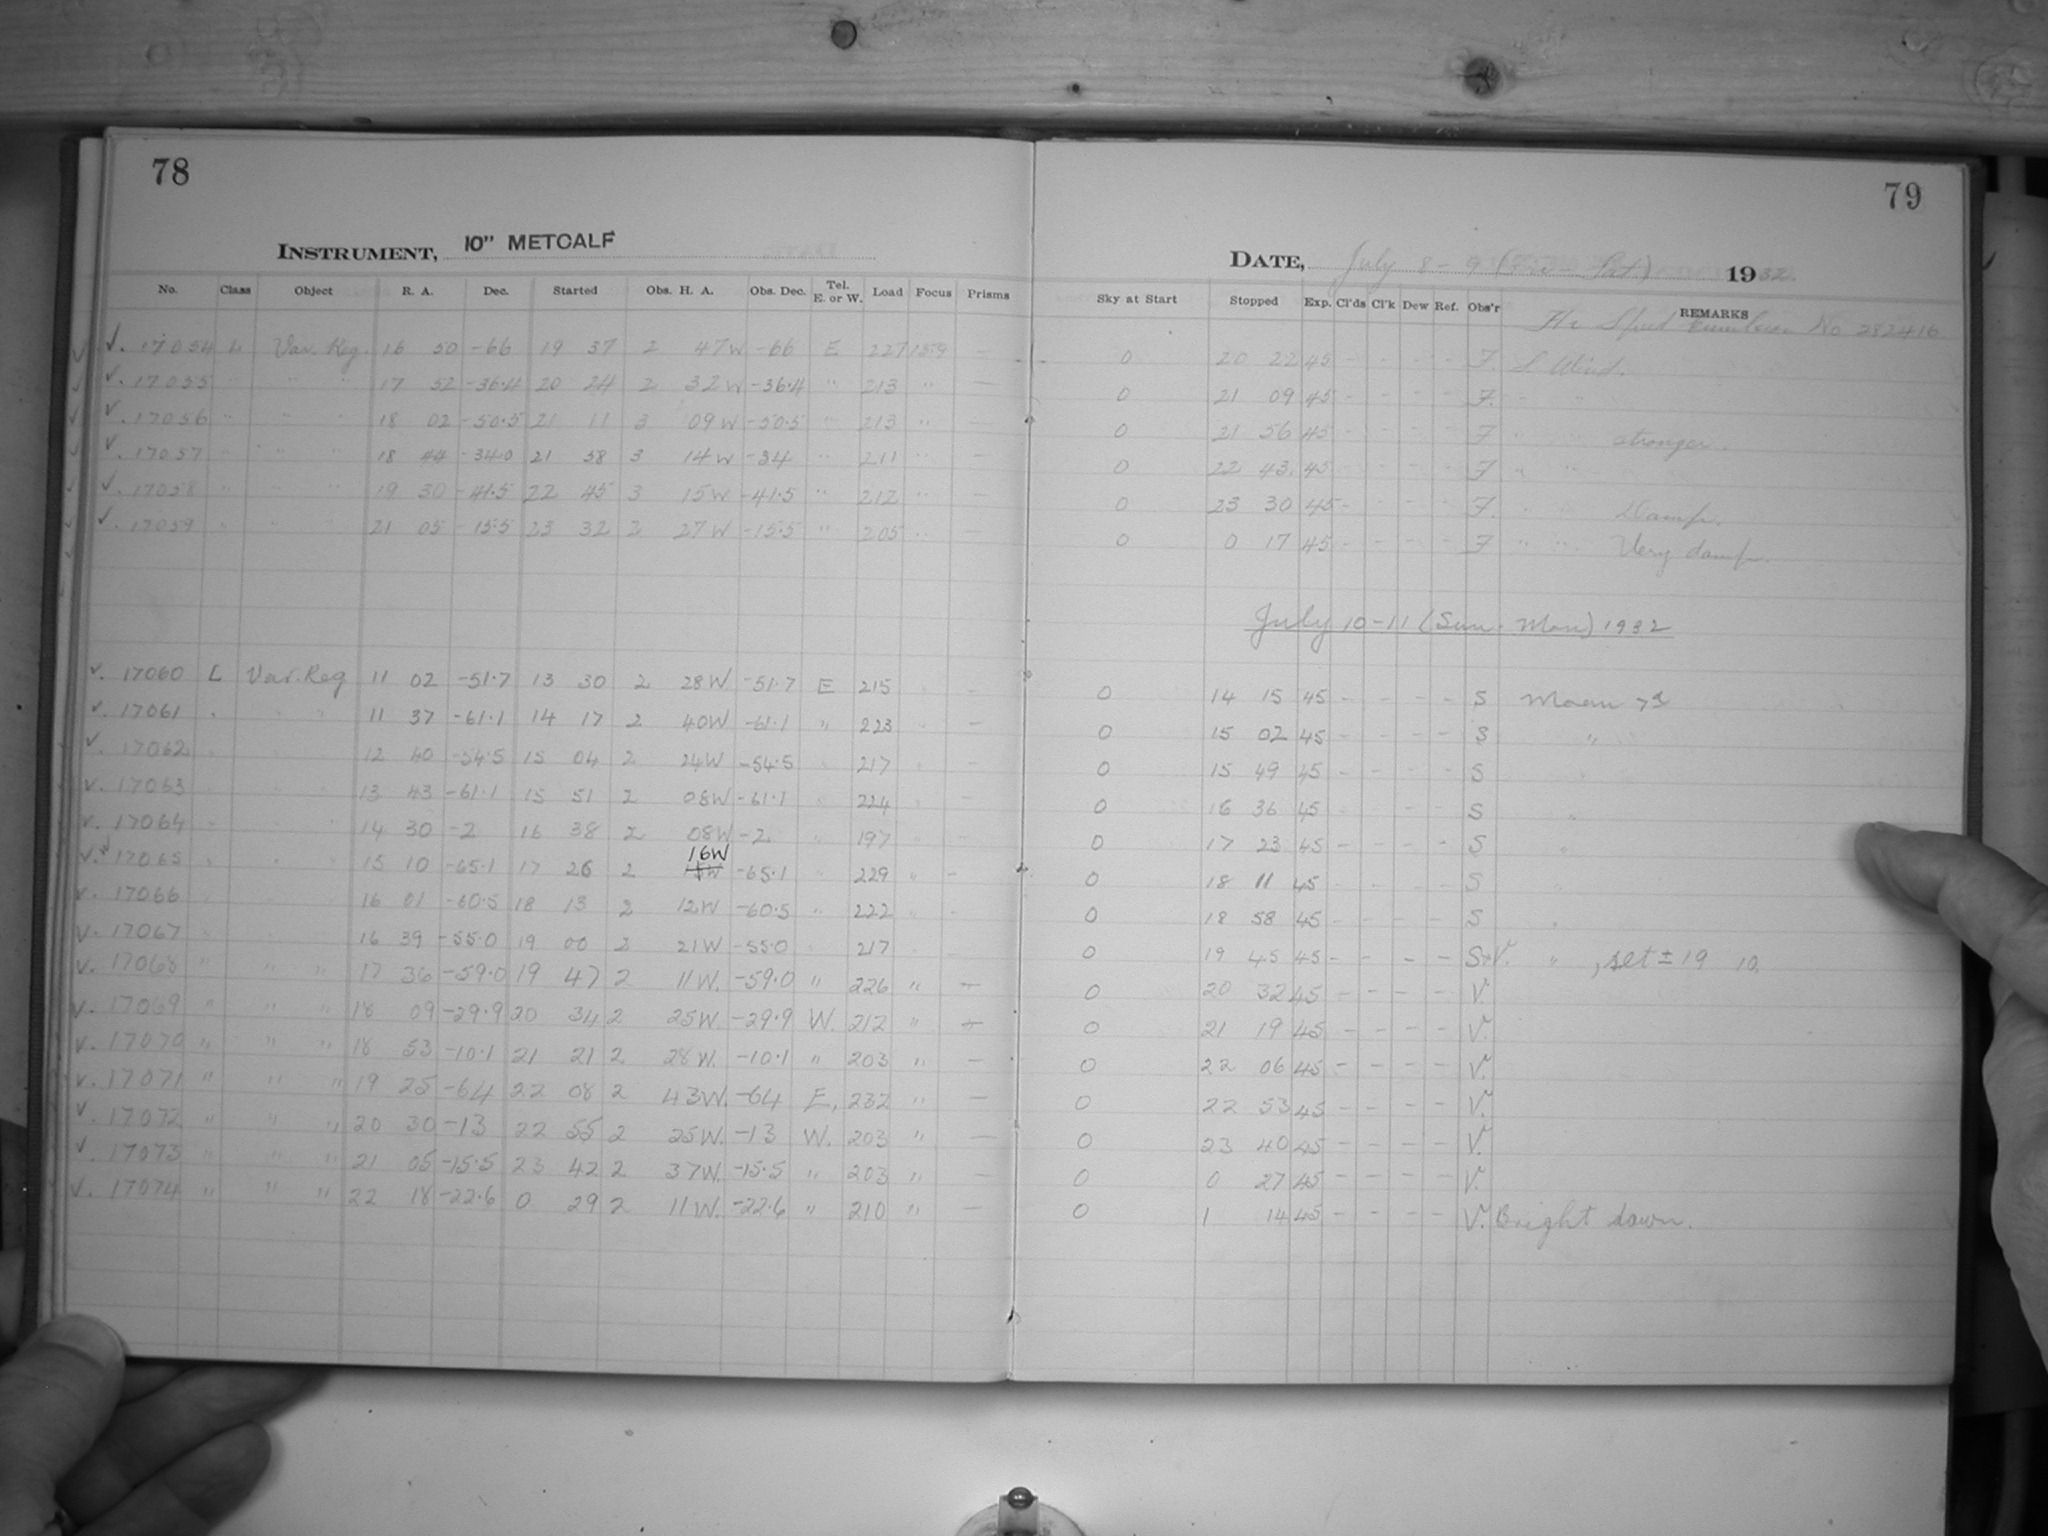 78
INSTRUMENT, 10" METCALF
No. Class Object R. A. Dec. Started Obs. H. A. Obs. Dec. Tel. E. or W. Load Focus Prisms
✓. 17054 L Var. Reg. 16 50 -66 19 37 2 47W -66 E 227 159 —
✓. 17055 " " " 17 52 -36.4 20 24 2 32W -36.4 " 213 " —
✓. 17056 " " " 18 02 -50.5 21 11 3 09W -50.5 " 213 " —
✓. 17057 " " " 18 44 -34.0 21 58 3 14W -34 " 211 " —
✓. 17058 " " " 19 30 -41.5 22 45 3 15W -41.5 " 212 " —
✓. 17059 " " " 21 05 -15.5 23 32 2 27W -15.5 " 205 " —
✓. 17060 L Var. Reg 11 02 -51.7 13 30 2 28W -51.7 E 215 " —
✓. 17061 " " " 11 37 -61.1 14 17 2 40W -61.1 " 223 " —
✓. 17062 " " " 12 40 -54.5 15 04 2 24W -54.5 " 217 " —
✓. 17063 " " " 13 43 -61.1 15 51 2 08W -61.1 " 224 " —
✓. 17064 " " " 14 30 -2 16 38 2 08W -2 " 197 " —
✓. 17065 " " " 15 10 -65.1 17 26 2 16W -65.1 " 229 " —
✓. 17066 " " " 16 01 -60.5 18 13 2 12W -60.5 " 222 " —
✓. 17067 " " " 16 39 -55.0 19 00 2 21W -55.0 " 217 " —
✓. 17068 " " " 17 36 -59.0 19 47 2 11W. -59.0 " 226 " —
✓. 17069 " " " 18 09 -29.9 20 34 2 25W. -29.9 W. 212 " —
✓. 17070 " " " 18 53 -10.1 21 21 2 28W. -10.1 " 203 " —
✓. 17071 " " " 19 25 -64 22 08 2 43W. -64 E, 232 " —
✓. 17072 " " " 20 30 -13 22 55 2 25W. -13 W. 203 " —
✓. 17073 " " " 21 05 -15.5 23 42 2 37W. -15.5 " 203 " —
✓. 17074 " " " 22 18 -22.6 0 29 2 11W. -22.6 " 210 " —
79
DATE, July 8-9 1932
Sky at Start Stopped Exp. Cl'ds Cl'k Dew Ref. Obs'r REMARKS
No 282416
0 20 22 45 - - - - F. S Wind.
0 21 09 45 - - - - F. " "
0 21 56 45 - - - - F " " stronger.
0 22 43 45 - - - - F " "
0 23 30 45 - - - - F. " " Damp.
0 0 17 45 - - - - F " " Very damp.
July 10-11 (Sun - Mon) 1932
0 14 15 45 - - - - S Moon 7d
0 15 02 45 - - - - S "
0 15 49 45 - - - - S "
0 16 36 45 - - - - S "
0 17 23 45 - - - - S "
0 18 11 45 - - - - S "
0 18 58 45 - - - - S "
0 19 45 45 - - - - S+V. " , set ± 19 10.
0 20 32 45 - - - - V.
0 21 19 45 - - - - V.
0 22 06 45 - - - - V.
0 22 53 45 - - - - V.
0 23 40 45 - - - - V.
0 0 27 45 - - - - V.
0 1 14 45 - - - - V. Bright dawn.